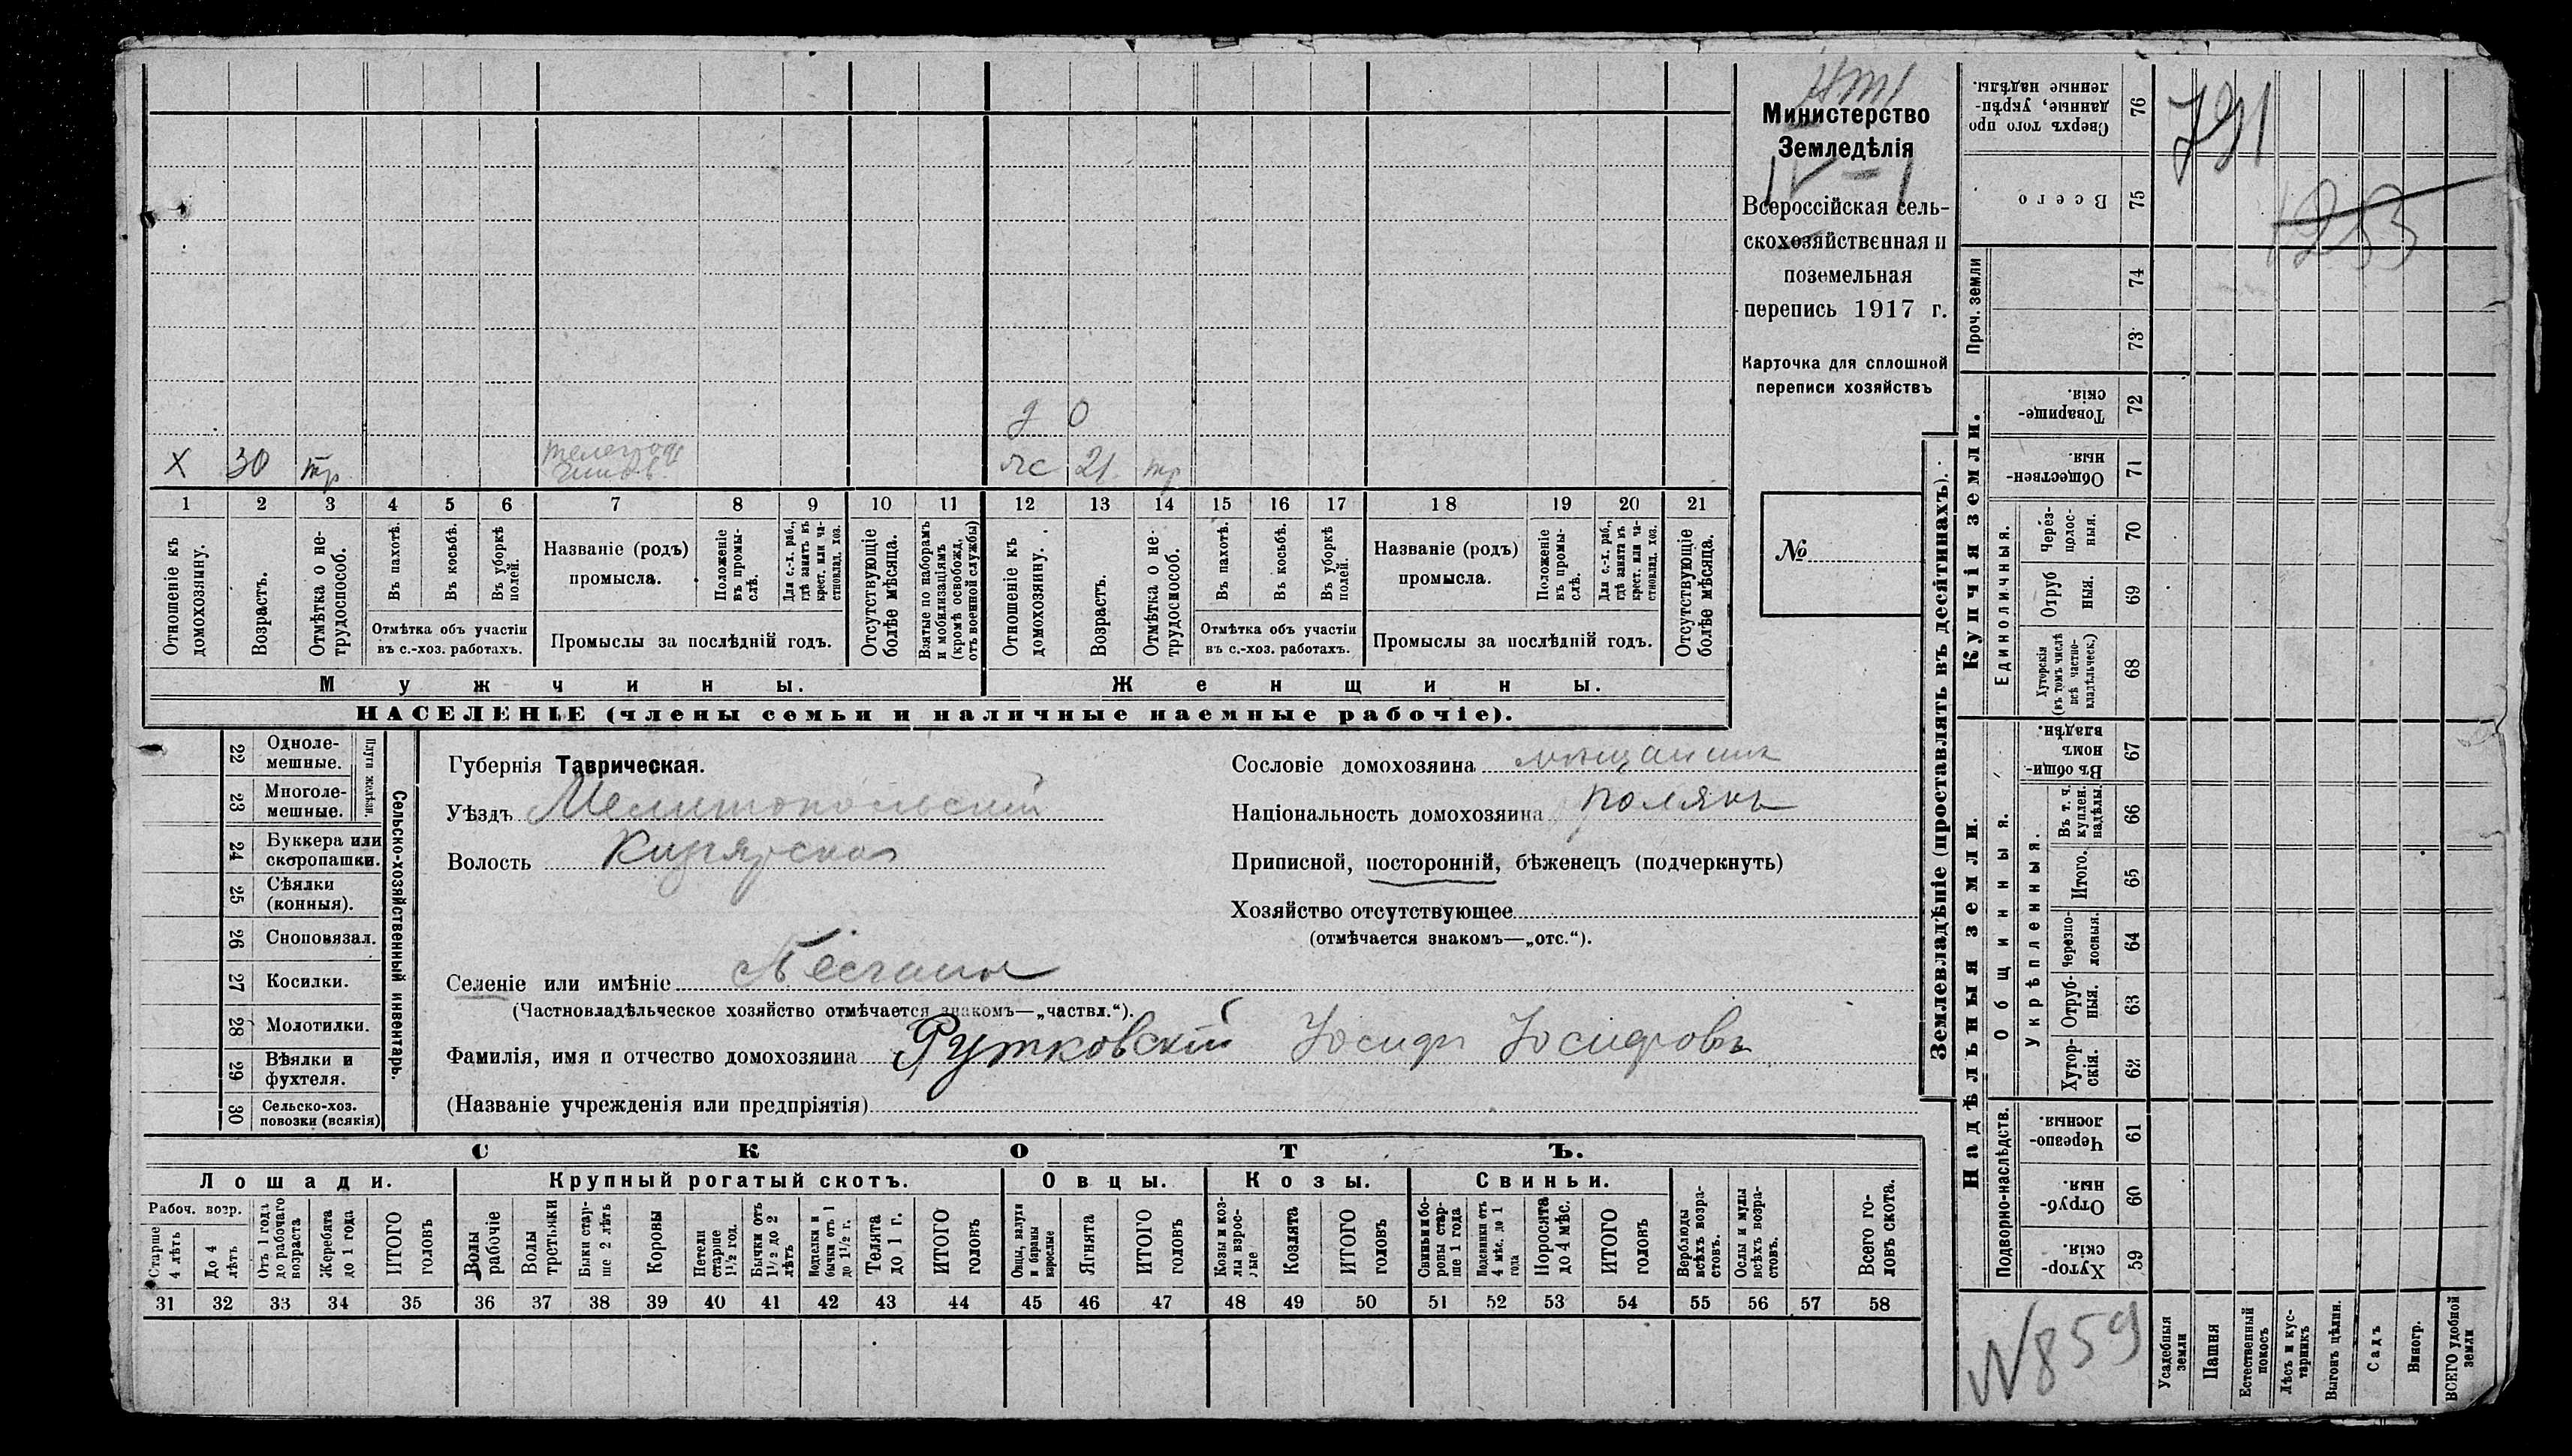 Министерство
Земледѣлія
IV – 1
Всероссійская сель-
скохозяйственная и
поземельная
перепись 1917 г.
Карточка для сплошной
переписи хозяйствъ
№
д 0
X 30 тр. телеграф чинов. ж 21 тр
1 2 3 4 5 6 7 8 9 10 11 12 13 14 15 16 17 18 19 20 21
Отношеніе къ домохозяину.
Возрастъ.
Отмѣтка о не-трудоспособ.
Въ пахотѣ.
Въ косьбѣ.
Въ уборкѣ полей.
Отмѣтка объ участіи
въ с.-хоз. работахъ.
Названіе (родъ)
промысла.
Положеніе въ промы-слѣ.
Для с.-х. раб., гдѣ занятъ въ крест. или ча-стновлад. хоз.
Промыслы за послѣдній годъ.
Отсутствующіе болѣе мѣсяца.
Взятые по наборамъ и мобилизаціямъ (кромѣ освобожд. отъ военной службы)
Отношеніе къ домохозяину.
Возрастъ.
Отмѣтка о не-трудоспособ.
Въ пахотѣ.
Въ косьбѣ.
Въ уборкѣ полей.
Отмѣтка объ участіи
въ с.-хоз. работахъ.
Названіе (родъ)
промысла.
Положеніе въ промы-слѣ.
Для с.-х. раб., гдѣ занята въ крест. или ча-стновлад. хоз.
Промыслы за послѣдній годъ.
Отсутствующіе болѣе мѣсяца.
Мужчины.
Женщины.
НАСЕЛЕНІЕ (члены семьи и наличные наемные рабочіе).
22 Одноле-мешные.
23 Многоле-мешные.
Плуги желѣзн.
24 Буккера или скоропашки.
25 Сѣялки (конныя).
26 Сноповязал.
27 Косилки.
28 Молотилки.
29 Вѣялки и фухтеля.
30 Сельско-хоз. повозки (всякія)
Сельско-хозяйственный инвентарь.
Губернія Таврическая.
Уѣздъ Мелитопольскій
Волость
Селеніе или имѣніе
(Частновладѣльческое хозяйство отмѣчается знакомъ—„частвл.“).
Фамилія, имя и отчество домохозяина Рутковскій Іосифъ Іосифовъ
(Названіе учрежденія или предпріятія)
Сословіе домохозяина мѣщанинъ
Національность домохозяина полякъ
Приписной, посторонній, бѣженецъ (подчеркнуть)
Хозяйство отсутствующее
(отмѣчается знакомъ—„отс.“).
СКОТЪ.
Лошади.
Крупный рогатый скотъ.
Овцы.
Козы.
Свиньи.
Рабоч. возр.
Старше 4 лѣтъ
До 4 лѣтъ
Отъ 1 года до рабочаго возраста
Жеребята до 1 года
ИТОГО головъ
Волы рабочіе
Волы третьяки
Быки стар-ше 2 лѣтъ
Коровы
Нетели старше 1½ год.
Бычки отъ 1½ до 2 лѣтъ
бычки отъ 1 до 1½ г.
Телята до 1 г.
ИТОГО головъ
Овцы, валухи и бараны взрослые
Ягнята
ИТОГО головъ
Козы и коз-лы взрос-лые
Козлята
ИТОГО головъ
Свиньи и бо-ровы стар-ше 1 года
Подсвинки отъ 4 мѣс. до 1 года
Поросята до 4 мѣс.
ИТОГО головъ
Верблюды всѣхъ возра-стовъ.
Ослы и мулы всѣхъ возра-стовъ.
Всего го-ловъ скота.
31 32 33 34 35 36 37 38 39 40 41 42 43 44 45 46 47 48 49 50 51 52 53 54 55 56 57 58
Землевладѣніе (проставлять въ десятинахъ).
791
1253
Сверхъ того про данные, укрѣп-ленные надѣлы. 76
Всего 75
Проч. земли
74
73
Купчія земли.
Товарище-скія. 72
Обществен-ныя. 71
Единоличныя.
Через-полос-ныя. 70
Отруб ныя. 69
Хуторскія (въ томъ числѣ всѣ частно-владѣльческ.) 68
Надѣльныя земли.
Общинныя.
Въ общи-номъ владѣн. 67
Укрѣпленныя.
Въ т. ч. куплен. надѣлы. 66
Итого. 65
Черезпо-лосныя. 64
Отруб-ныя. 63
Хутор-скія. 62
Подворно-наслѣдств.
Черезпо-лосныя. 61
Отруб-ныя. 60
Хутор-скія. 59
№859
Усадебныя земли
Пашня
Естественный покосъ
Лѣсъ и кус-тарникъ
Выгонъ цѣлин.
Садъ
Виногр.
ВСЕГО удобной земли